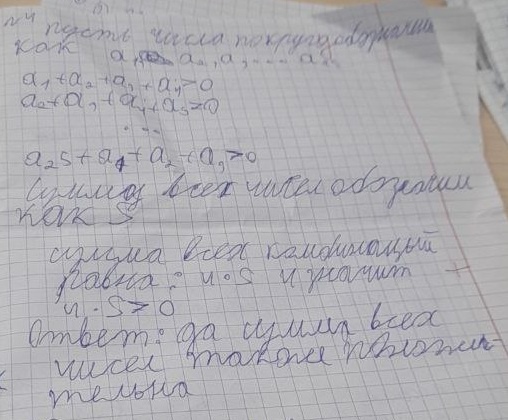 №4 пусть числа по кругу обозначим
как a₁, a₂, a₃ ... a₂₅
a₁ + a₂ + a₃ + a₄ > 0
a₂ + a₃ + a₄ + a₅ > 0
...
a₂₅ + a₁ + a₂ + a₃ > 0
Сумма всех чисел обозначим
как S
сумма всех комбинаций
равна: 4·S и значит
4·S > 0
Ответ: да сумма всех
чисел также положи-
тельна